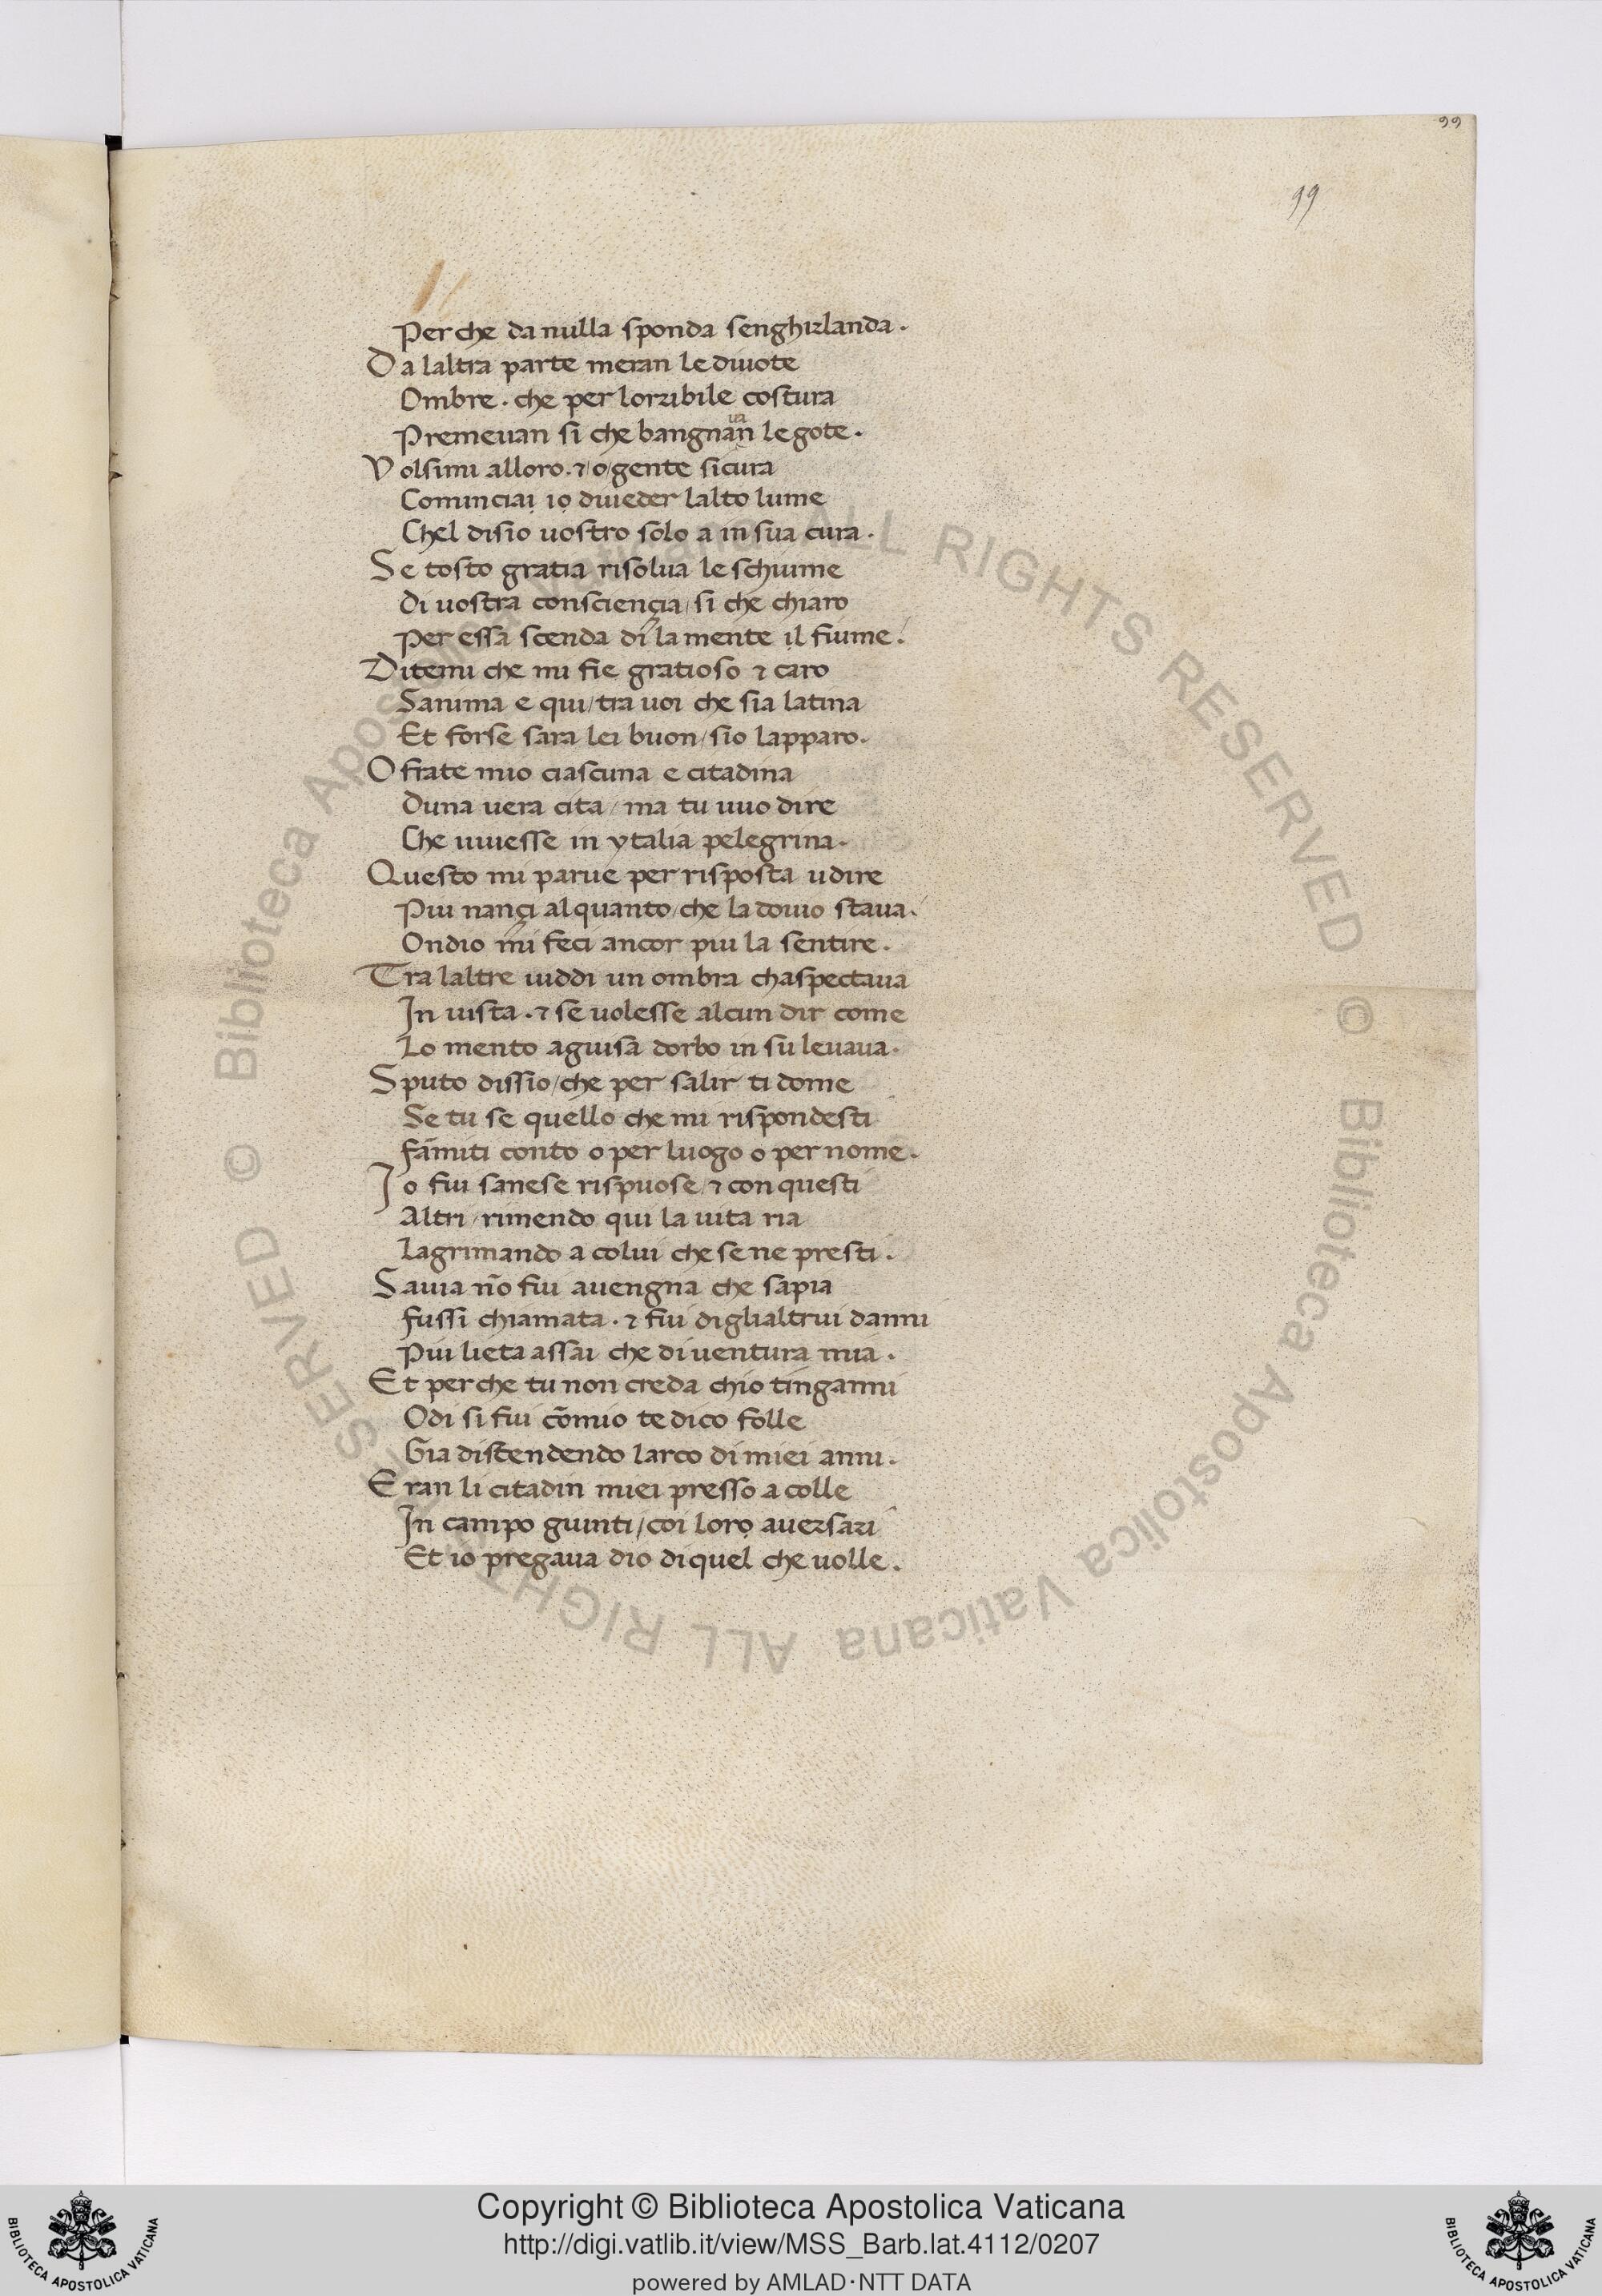 99
99
Perche da nulla sponda senghirlanda.
Da laltra parte meran le diuote
Ombre. che per lorribile costura
ua
Premeuan si che bangnan le gote.
Volsimi alloro. & o gente sicura
Cominciai io di ueder lalto lume
Chel disio uostro solo a in sua cura.
Se tosto gratia risolua le schiume
Di uostra conscienҫia / si che chiaro
Per essa scenda di la mente il fiume.
Ditemi che mi fie gratioso & caro
Sanima e qui / tra uoi che sia latina
Et forse sara lei buon / sio lapparo.
O frate mio ciascuna e citadina
Duna uera cita / ma tu uuo dire
Che uiuesse in ytalia pelegrina.
Questo mi parue per risposta udire
Piu nanҫi alquanto / che la douio staua.
Ondio mi feci ancor piu la sentire.
Tra laltre uiddi un ombra chaspectaua
In uista. & se uolesse alcun dir come
Lo mento aguisa dorbo in su leuaua.
Sputo dissio / che per salir ti dome
Se tu se quello che mi rispondesti
fāmiti conto o per luogo o per nome.
Io fui sanese rispuose / & con questi
Altri / rimendo qui la uita ria
Lagrimando a colui che se ne presti.
Sauia nō fui auengna che sapia
fussi chiamata. & fui diglialtrui danni
Piu lieta assai che di uentura mia.
Et perche tu non creda chio tinganni
Odi si fui cōmio te dico folle
Gia discendendo larco di miei anni.
Eran li citadin miei presso a colle
In campo guinti / coi loro auersari
Et io pregaua dio di quel che uolle.
© Biblioteca Apostolica Vaticana ALL RIGHTS RESERVED
© Biblioteca Apostolica Vaticana ALL RIGHTS RESERVED
Copyright © Biblioteca Apostolica Vaticana
http://digi.vatlib.it/view/MSS_Barb.lat.4112/0207
powered by AMLAD·NTT DATA
BIBLIOTECA APOSTOLICA VATICANA
BIBLIOTECA APOSTOLICA VATICANA